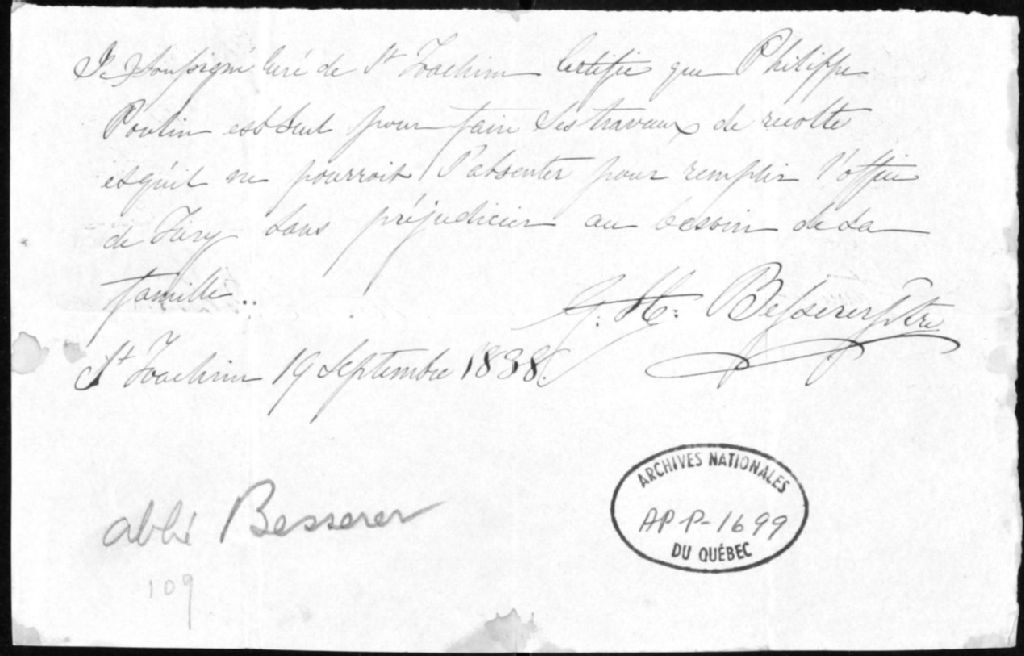 Je Soussigné Curé de St Joachim Certifie que Philippe
Poulin est Seul pour faire Ses travaux de recolte
et qu'il ne pourroit S'absenter pour remplir l'office
de Jury Sans préjudicier au besoin de Sa
famille..
G. H. Besserer Ptre
St Joachim 19 Septembre 1838.
abbé Besserer
109
ARCHIVES NATIONALES
AP P-1699
DU QUÉBEC